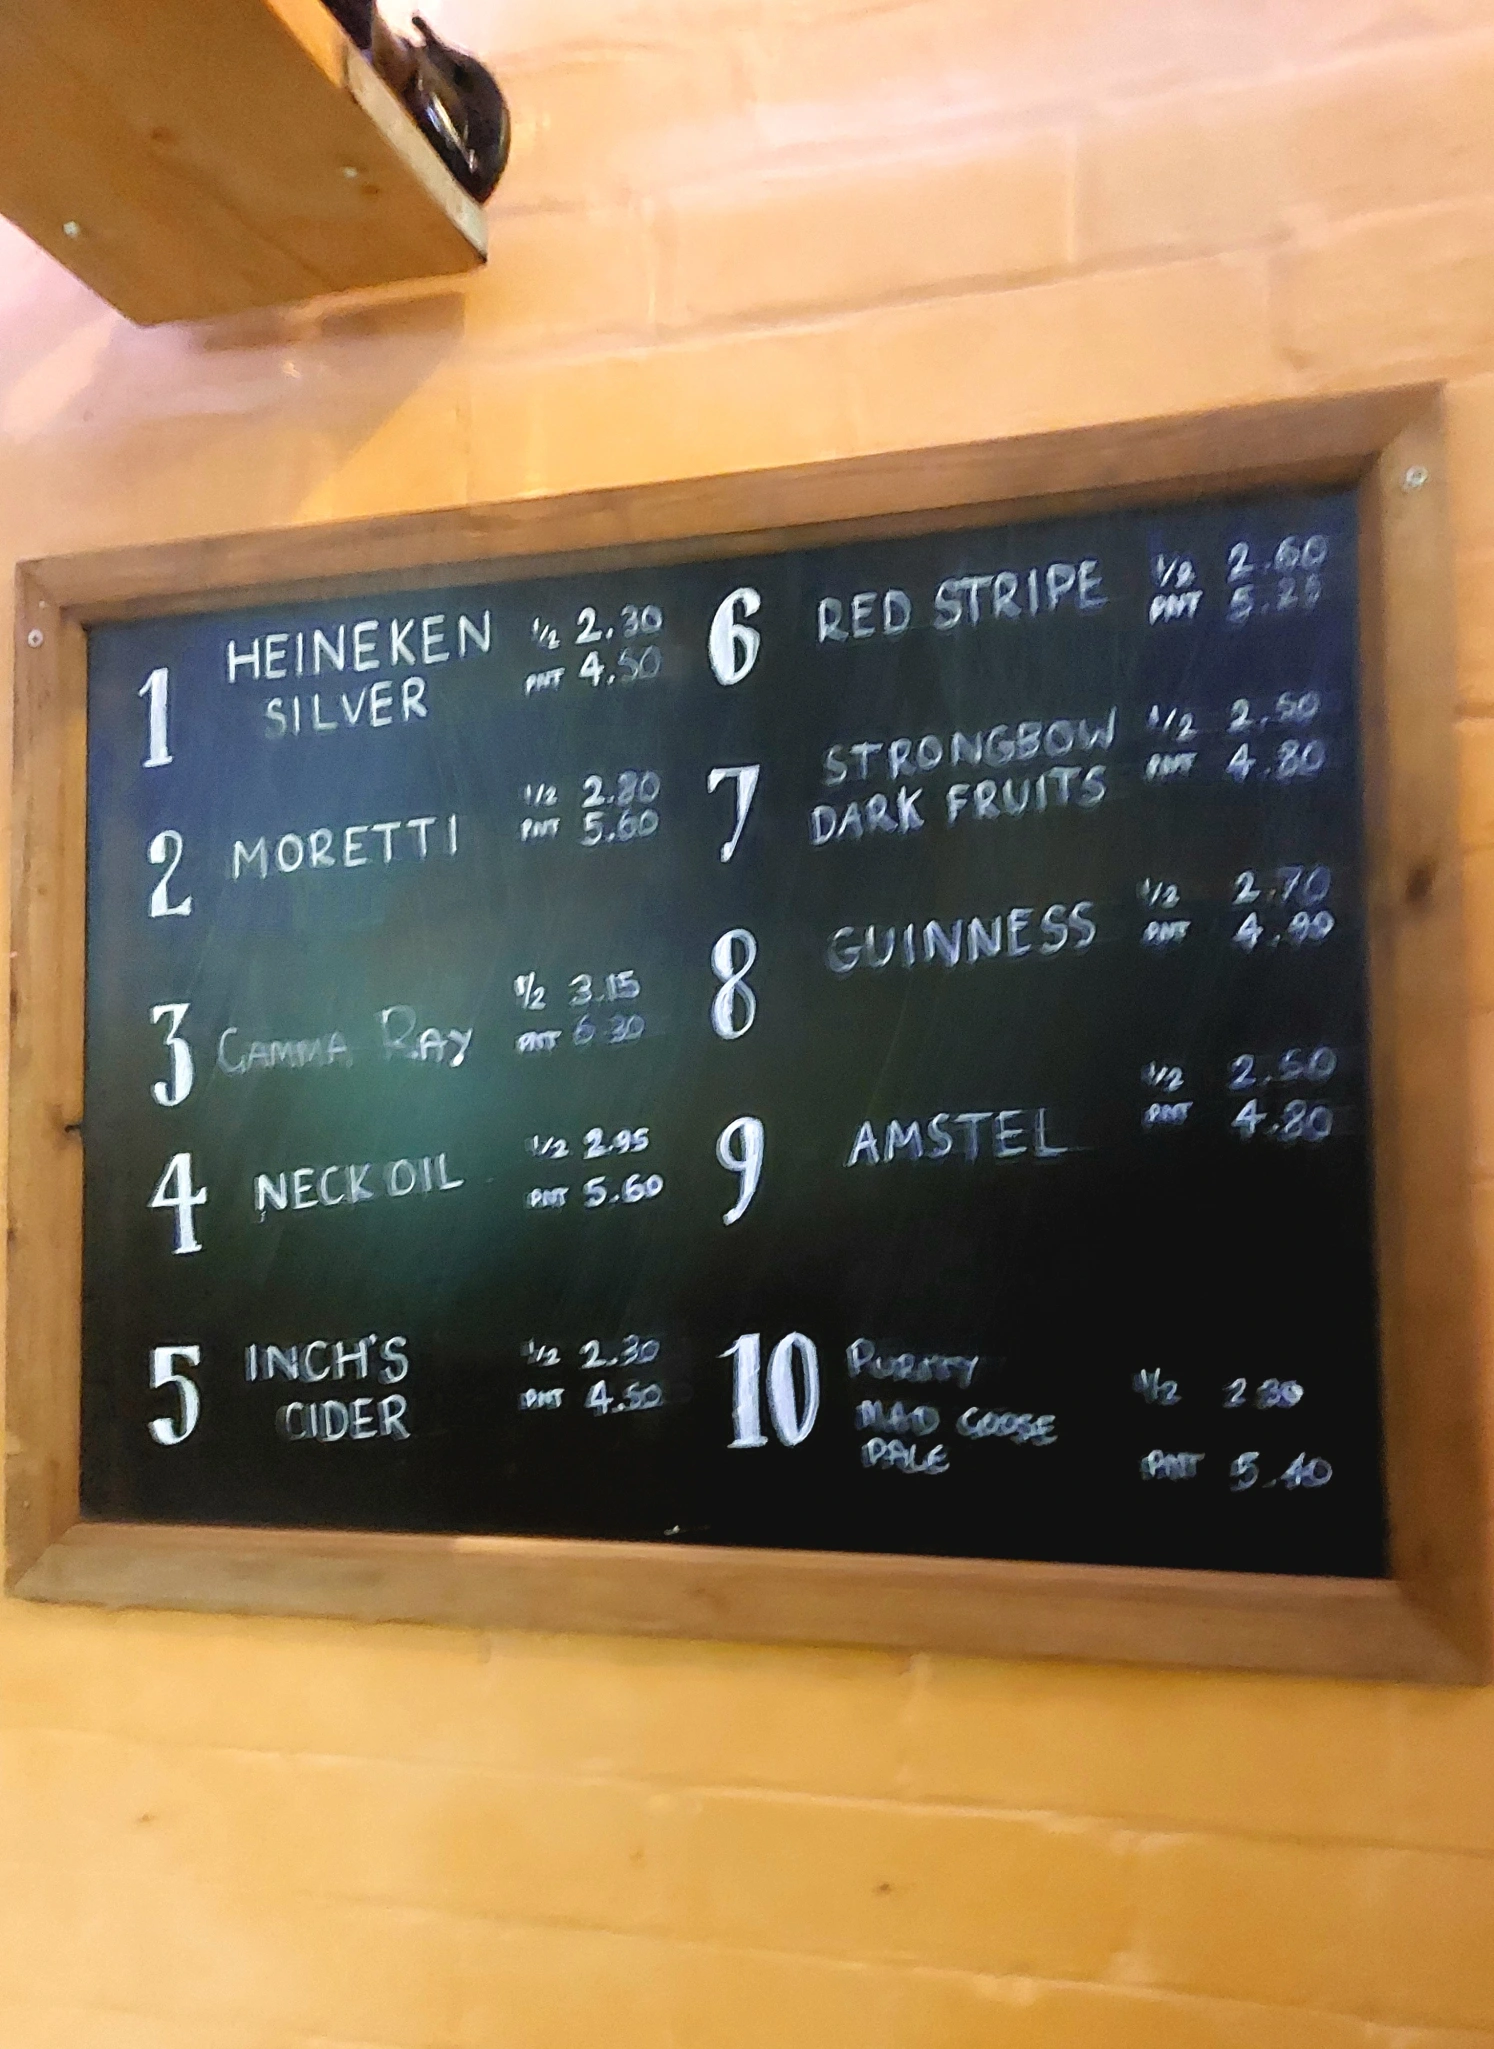 1 HEINEKEN SILVER 1/2 2.30
PNT 4.50
2 MORETTI 1/2 2.80
PNT 5.60
3 GAMMA RAY 1/2 3.15
PNT 6.30
4 NECK OIL 1/2 2.95
PNT 5.60
5 INCH'S CIDER 1/2 2.30
PNT 4.50
6 RED STRIPE 1/2 2.60
PNT
7 STRONGBOW DARK FRUITS 1/2 2.50
PNT 4.80
8 GUINNESS 1/2 2.70
PNT 4.90
9 AMSTEL 1/2 2.50
PNT 4.80
10 PURITY
MAD GOOSE
PALE
1/2
PNT 5.40